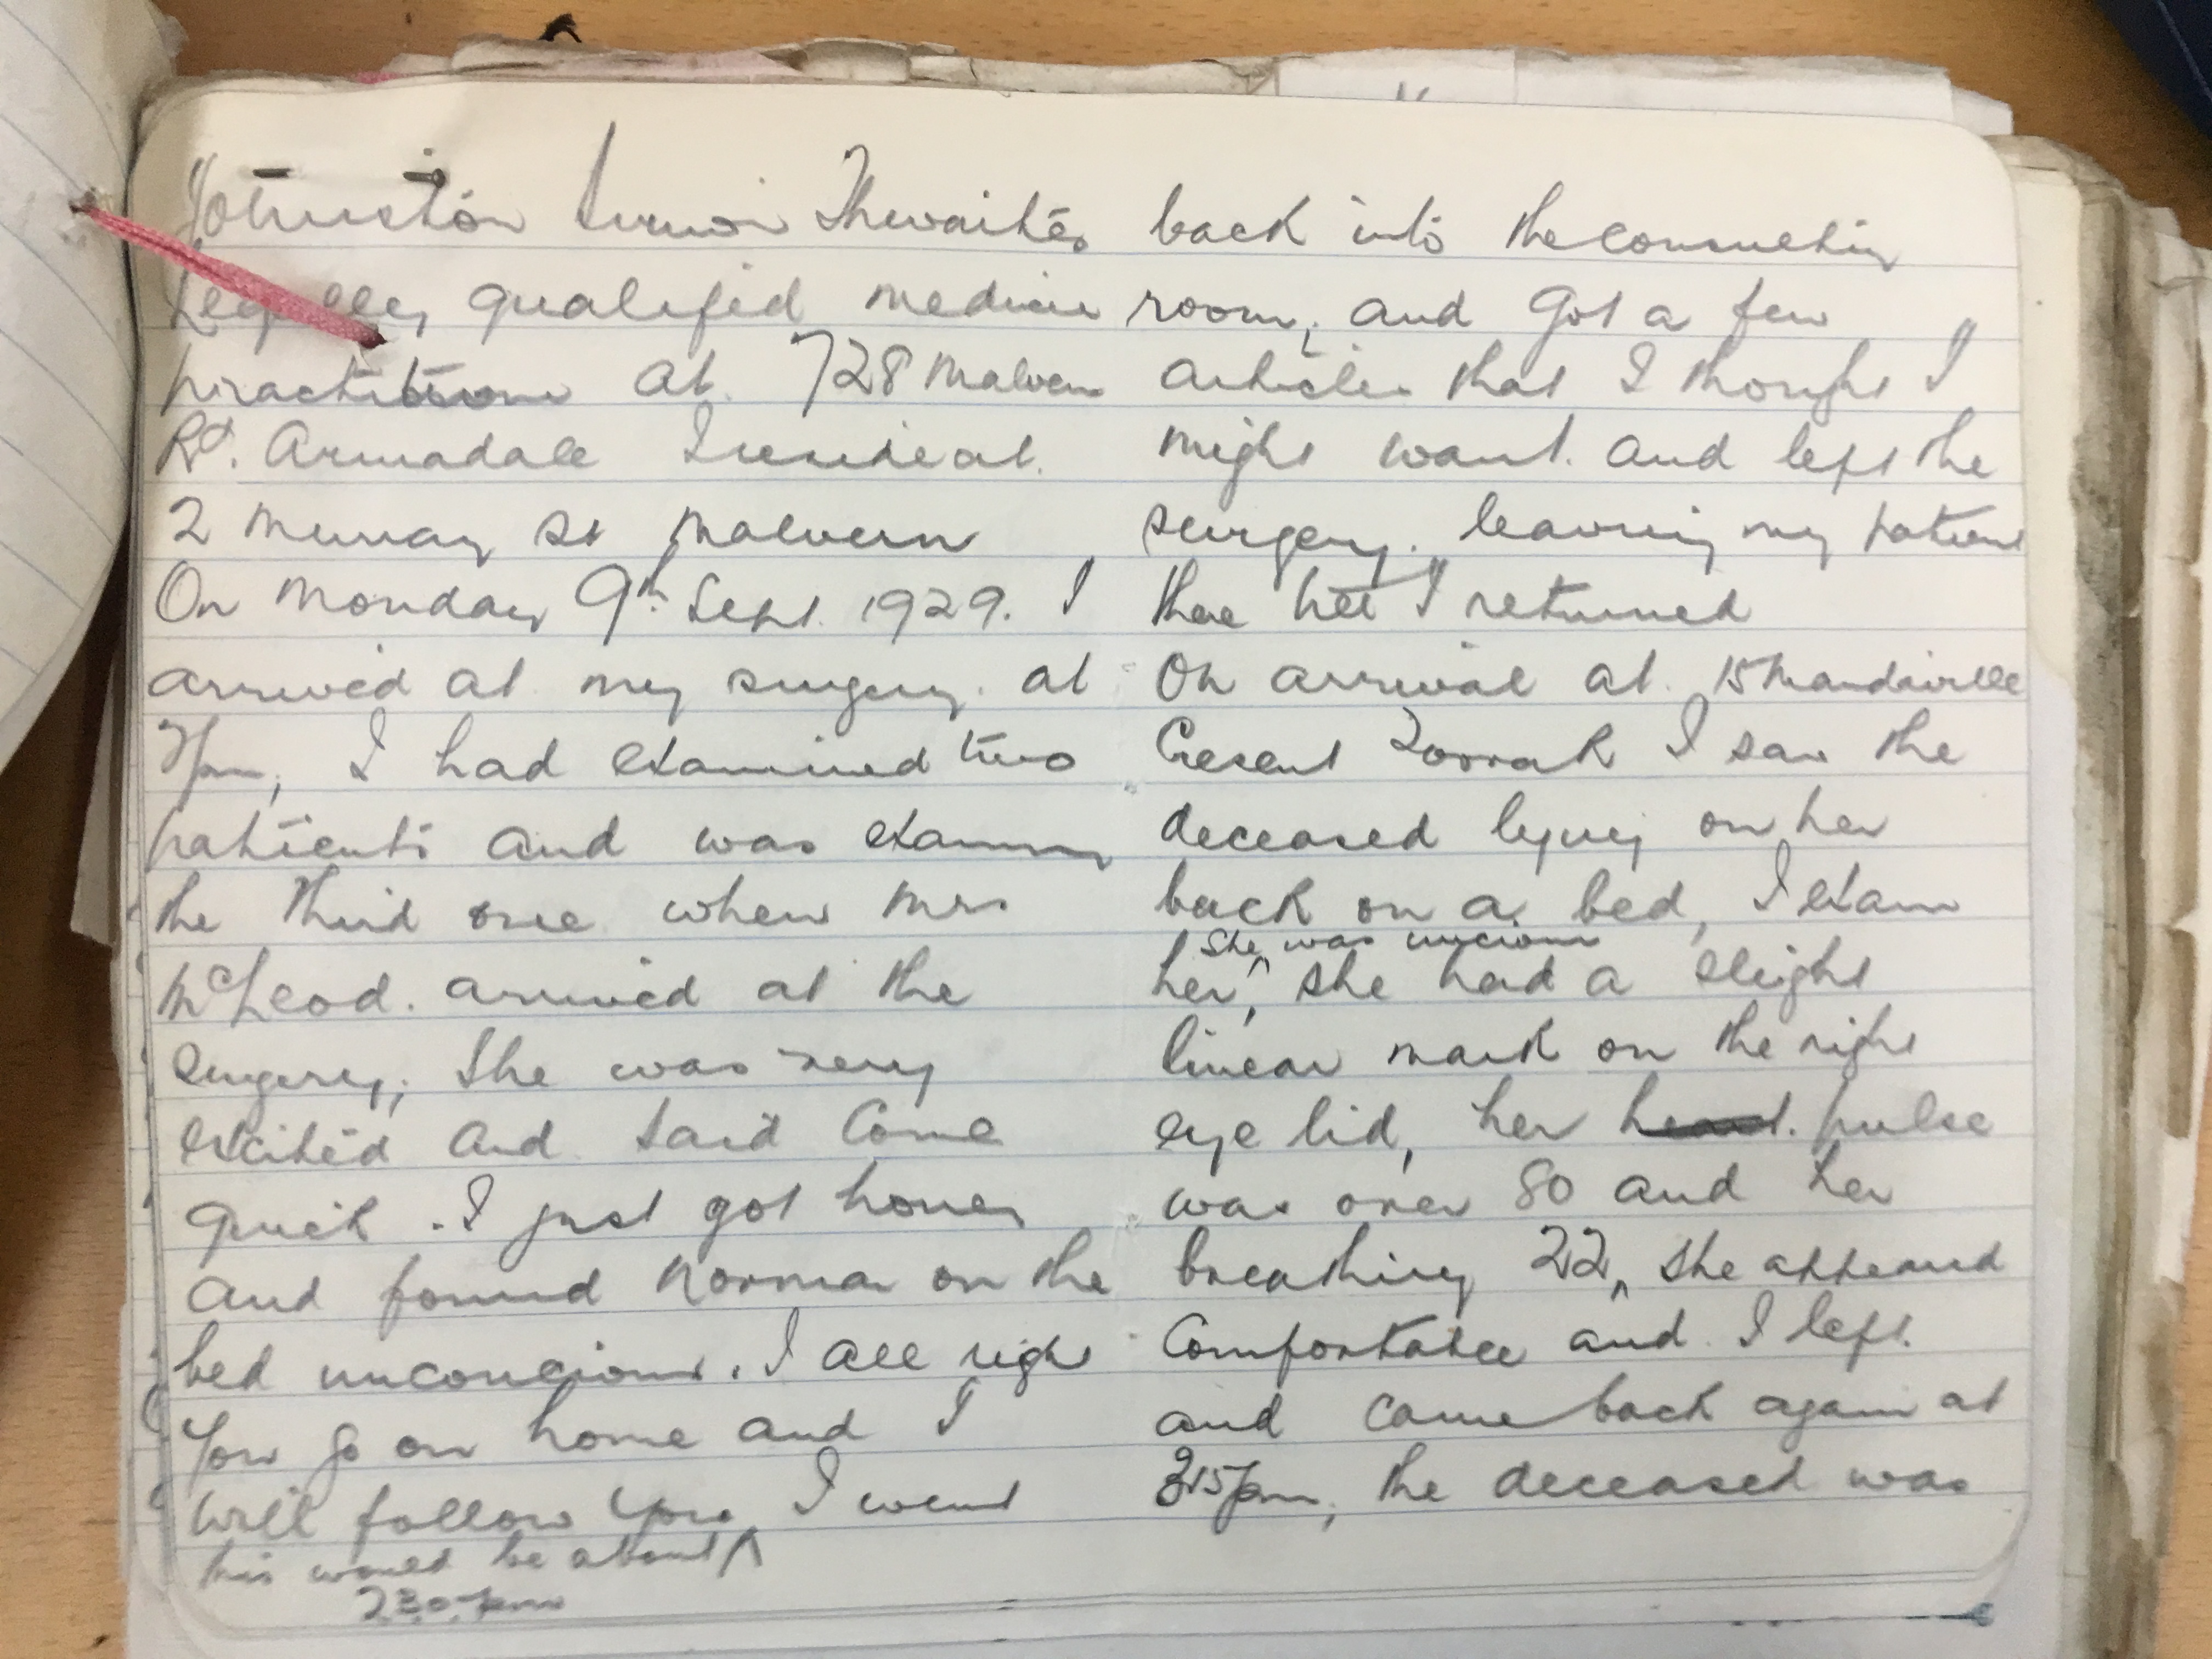 Johnston Thwaites
Legally qualified medicine
practitione at. 728 Malvern
Rd. Armadale I reside at.
2 Murray St Malvern
On Monday 9th Sept. 1929. I
arrived at my surgery. at
pm, I had examined two
patients and was examing
the third one when Mrs
McLeod. arrived at the
surgery; She was very
excited and said Come
quick. I just got home
and found Norma on the
bed unconcious. I all right
You go on home and I
will follow you, I went
this would be about
2.30 pm
back into the consulting
room, and got a few
articles that I thought I
might want. and left the
surgery. leaving my patient
there till I returned
On arrival at. 15 Mandaville
Cresent Toorak I saw the
deceased lying on her
back on a bed, I exam
She was uncious
her, she had a slight
linear mark on the right
eye lid, her pulse
was over 80 and her
breathing 22, she appeared
Comfortable and I left.
and came back again at
pm, the deceased was